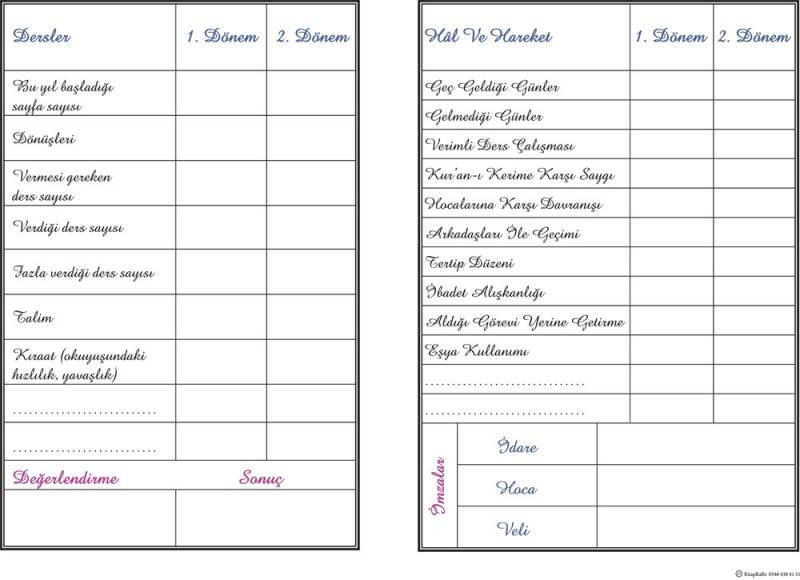 Dersler 1. Dönem 2. Dönem
Bu yıl başladığı
sayfa sayısı
Dönüşleri
Vermesi gereken
ders sayısı
Verdiği ders sayısı
Fazla verdiği ders sayısı
Talim
Kıraat (okuyuşundaki
hızlılık, yavaşlık)
...........................
...........................
Değerlendirme Sonuç
Hâl Ve Hareket 1. Dönem 2. Dönem
Geç Geldiği Günler
Gelmediği Günler
Verimli Ders Çalışması
Kur'an-ı Kerime Karşı Saygı
Hocalarına Karşı Davranışı
Arkadaşları İle Geçimi
Tertip Düzeni
İbadet Alışkanlığı
Aldığı Görevi Yerine Getirme
Eşya Kullanımı
..............................
..............................
İmzalar
İdare
Hoca
Veli
KitapKalbi 0544 438 41 51